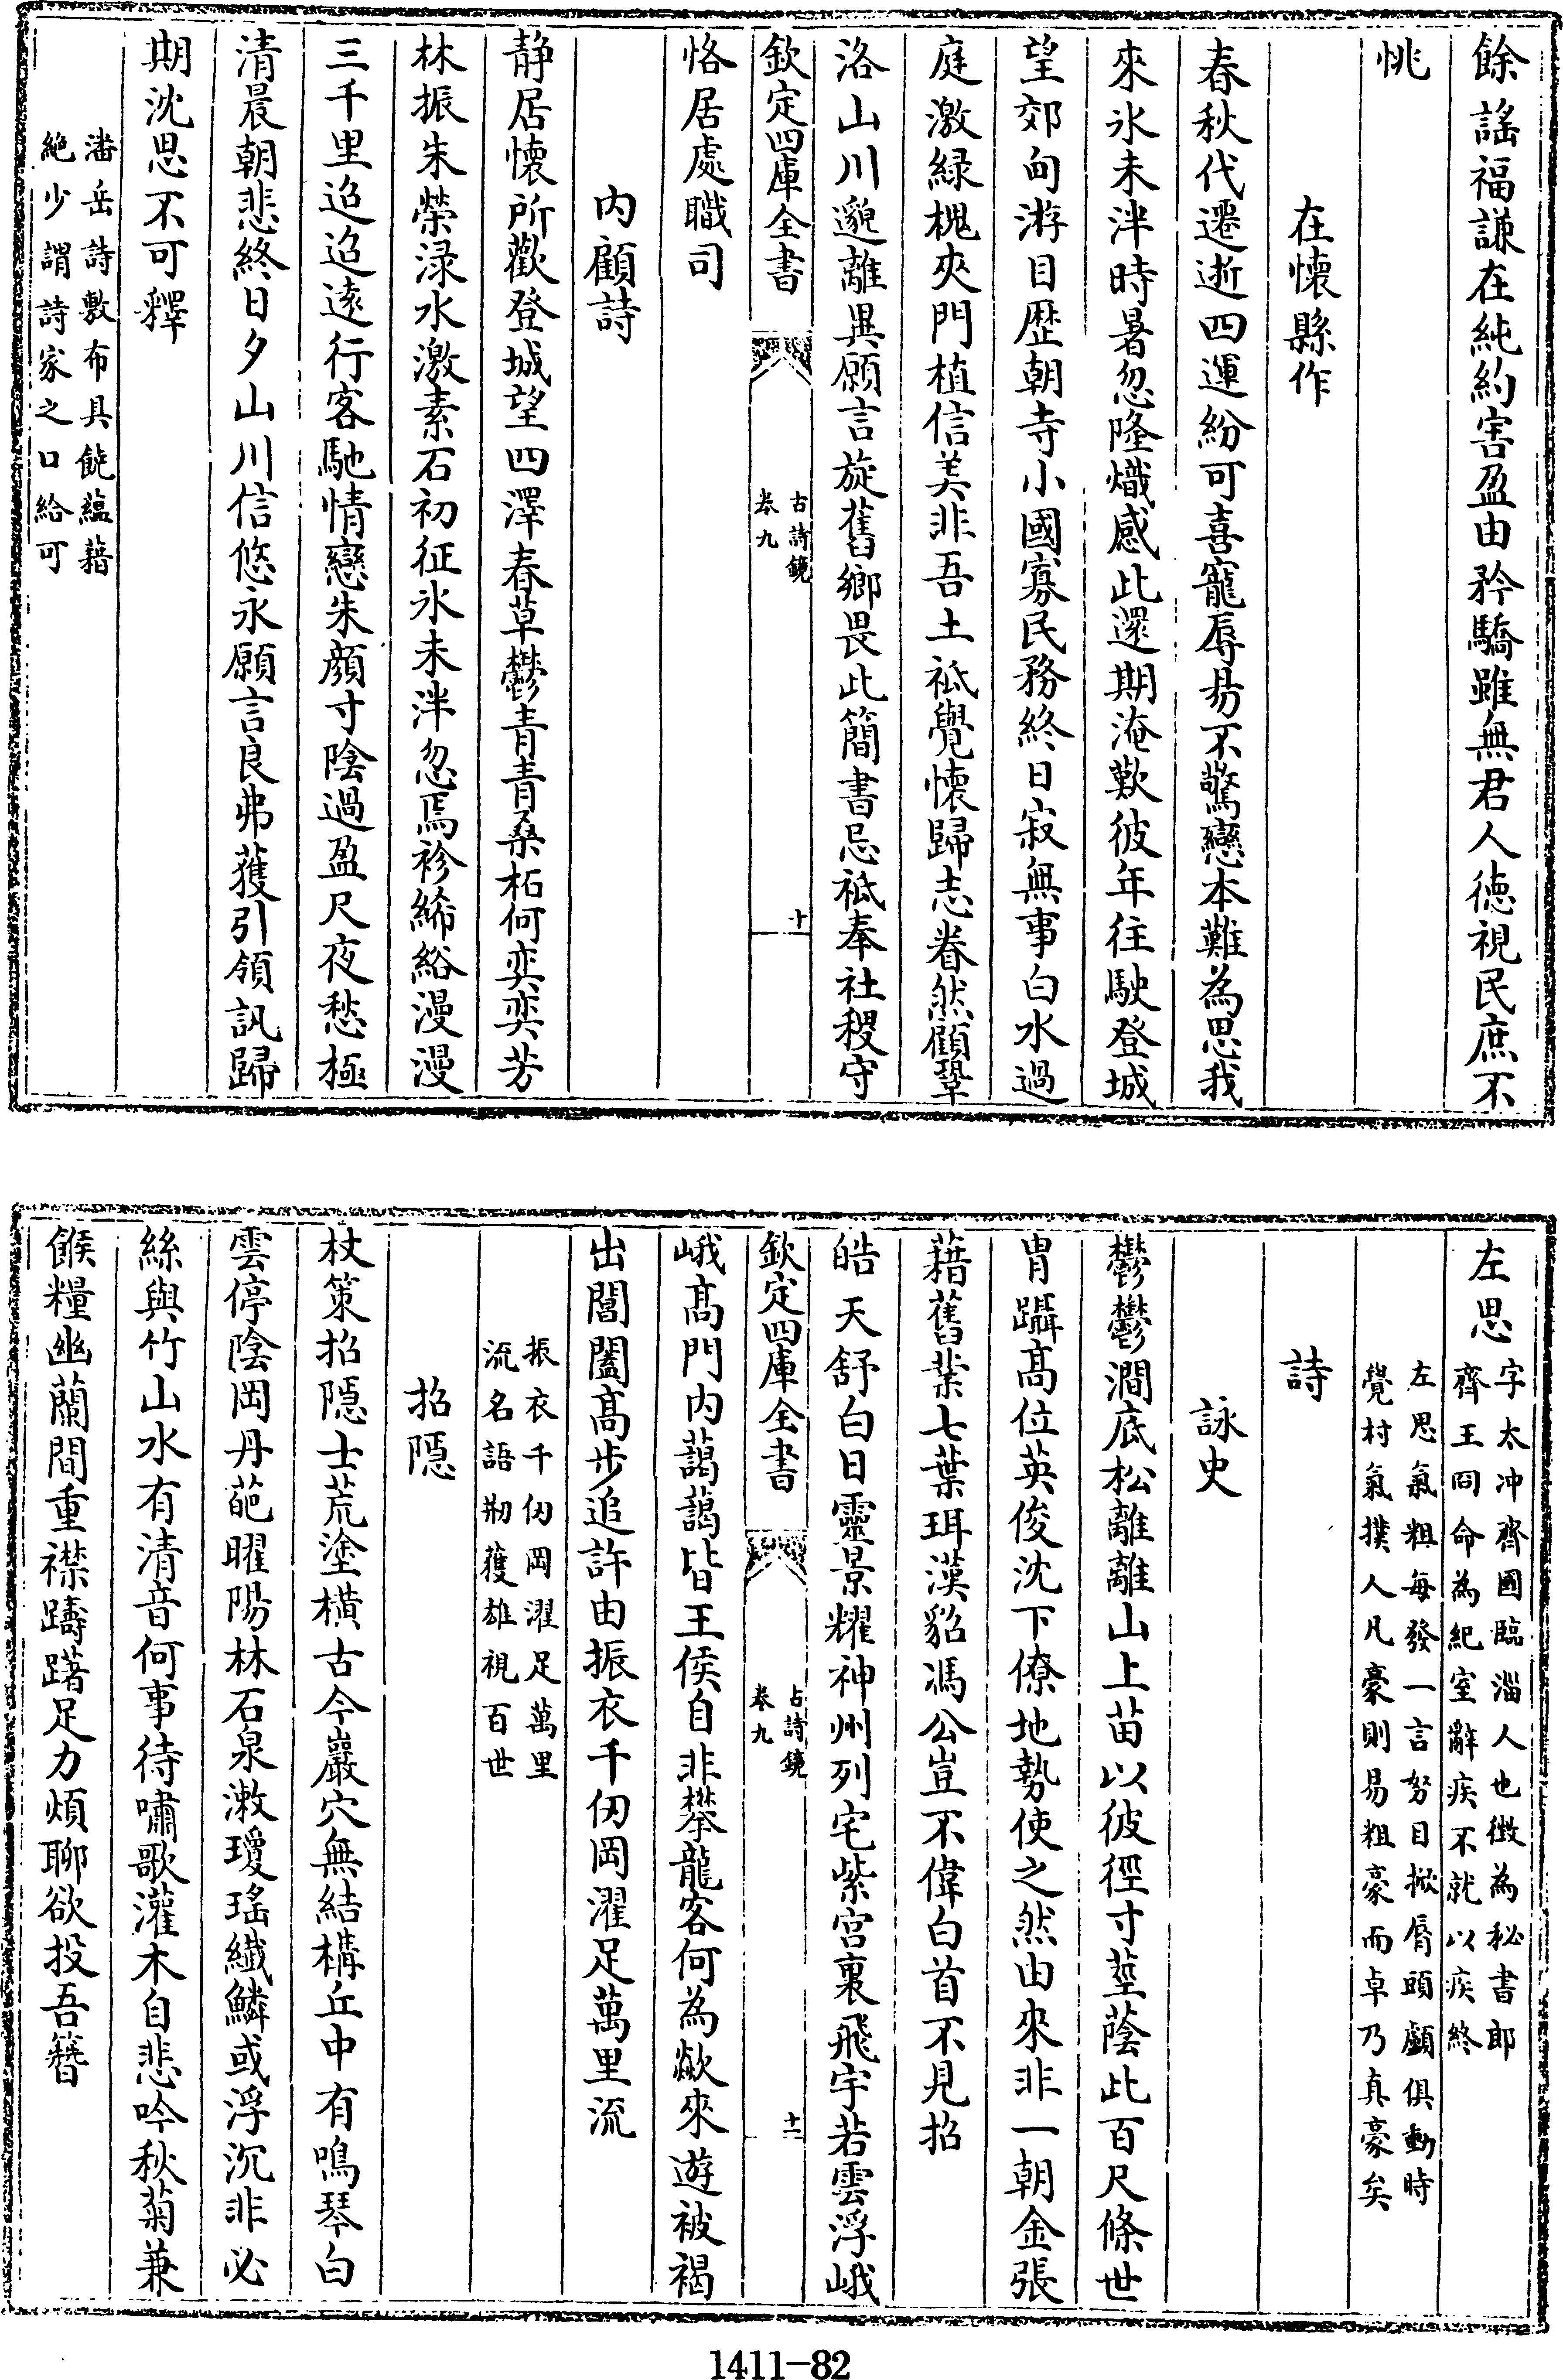 餘謡福謙在純約害盈由矜驕雖無君人徳視民庶不
恌
在懷縣作
春秋代遷逝四運紛可喜寵辱易不驚戀本難為思我
來氷未泮時暑忽隆熾感此還期淹歎彼年往駛登城
望郊甸游目歴朝寺小國寡民務終日寂無事白水過
庭激緑槐夾門植信美非吾土祗覺懷歸志眷然顧鞏
洛山川邈離異願言旋舊鄉畏此簡書忌祗奉社稷守
欽定四庫全書
古詩鏡
卷九
十
恪居處職司
内顧詩
静居懷所歡登城望四澤春草鬱青青桑柘何奕奕芳
林振朱榮渌水激素石初征氷未泮忽焉袗絺綌漫漫
三千里迢迢逺行客馳情戀朱顔寸陰過盈尺夜愁極
清晨朝悲終日夕山川信悠永願言良弗獲引領訊歸
期沈思不可釋
潘岳詩敷布具饒藴藉
絶少謂詩家之口給可
左思
字太冲齊國臨淄人也徴為秘書郎
齊王冏命為紀室辭疾不就以疾終
左思氣粗每發一言努目掀脣頭顱俱動時
覺村氣撲人凡豪則易粗豪而卓乃真豪矣
詩
詠史
鬱鬱澗底松離離山上苗以彼徑寸莖蔭此百尺條世
胄躡髙位英俊沈下僚地勢使之然由來非一朝金張
藉舊業七葉珥漢貂馮公豈不偉白首不見招
皓天舒白日靈景耀神州列宅紫宫裏飛宇若雲浮峨
欽定四庫全書
古詩鏡
卷九
十一
峨髙門内藹藹皆王侯自非攀龍客何為歘來遊被褐
出閶闔髙步追許由振衣千仞岡濯足萬里流
振衣千仞岡濯足萬里
流名語剏獲雄視百世
招隠
杖策招隠士荒塗橫古今巖穴無結構丘中有鳴琴白
雲停陰岡丹葩曜陽林石泉漱瓊瑤纖鱗或浮沉非必
絲與竹山水有清音何事待嘯歌灌木自悲吟秋菊兼
餱糧幽蘭間重襟躊躇足力煩聊欲投吾簪
1411-82